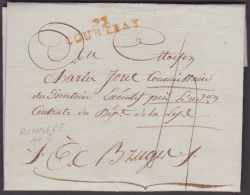 91
COURTRAY
Au Citoyen
Charle Joret Commissaire
du Directoire Exécutif près l'adm.on
Centrale du Dépt. de la Lys
A Bruges